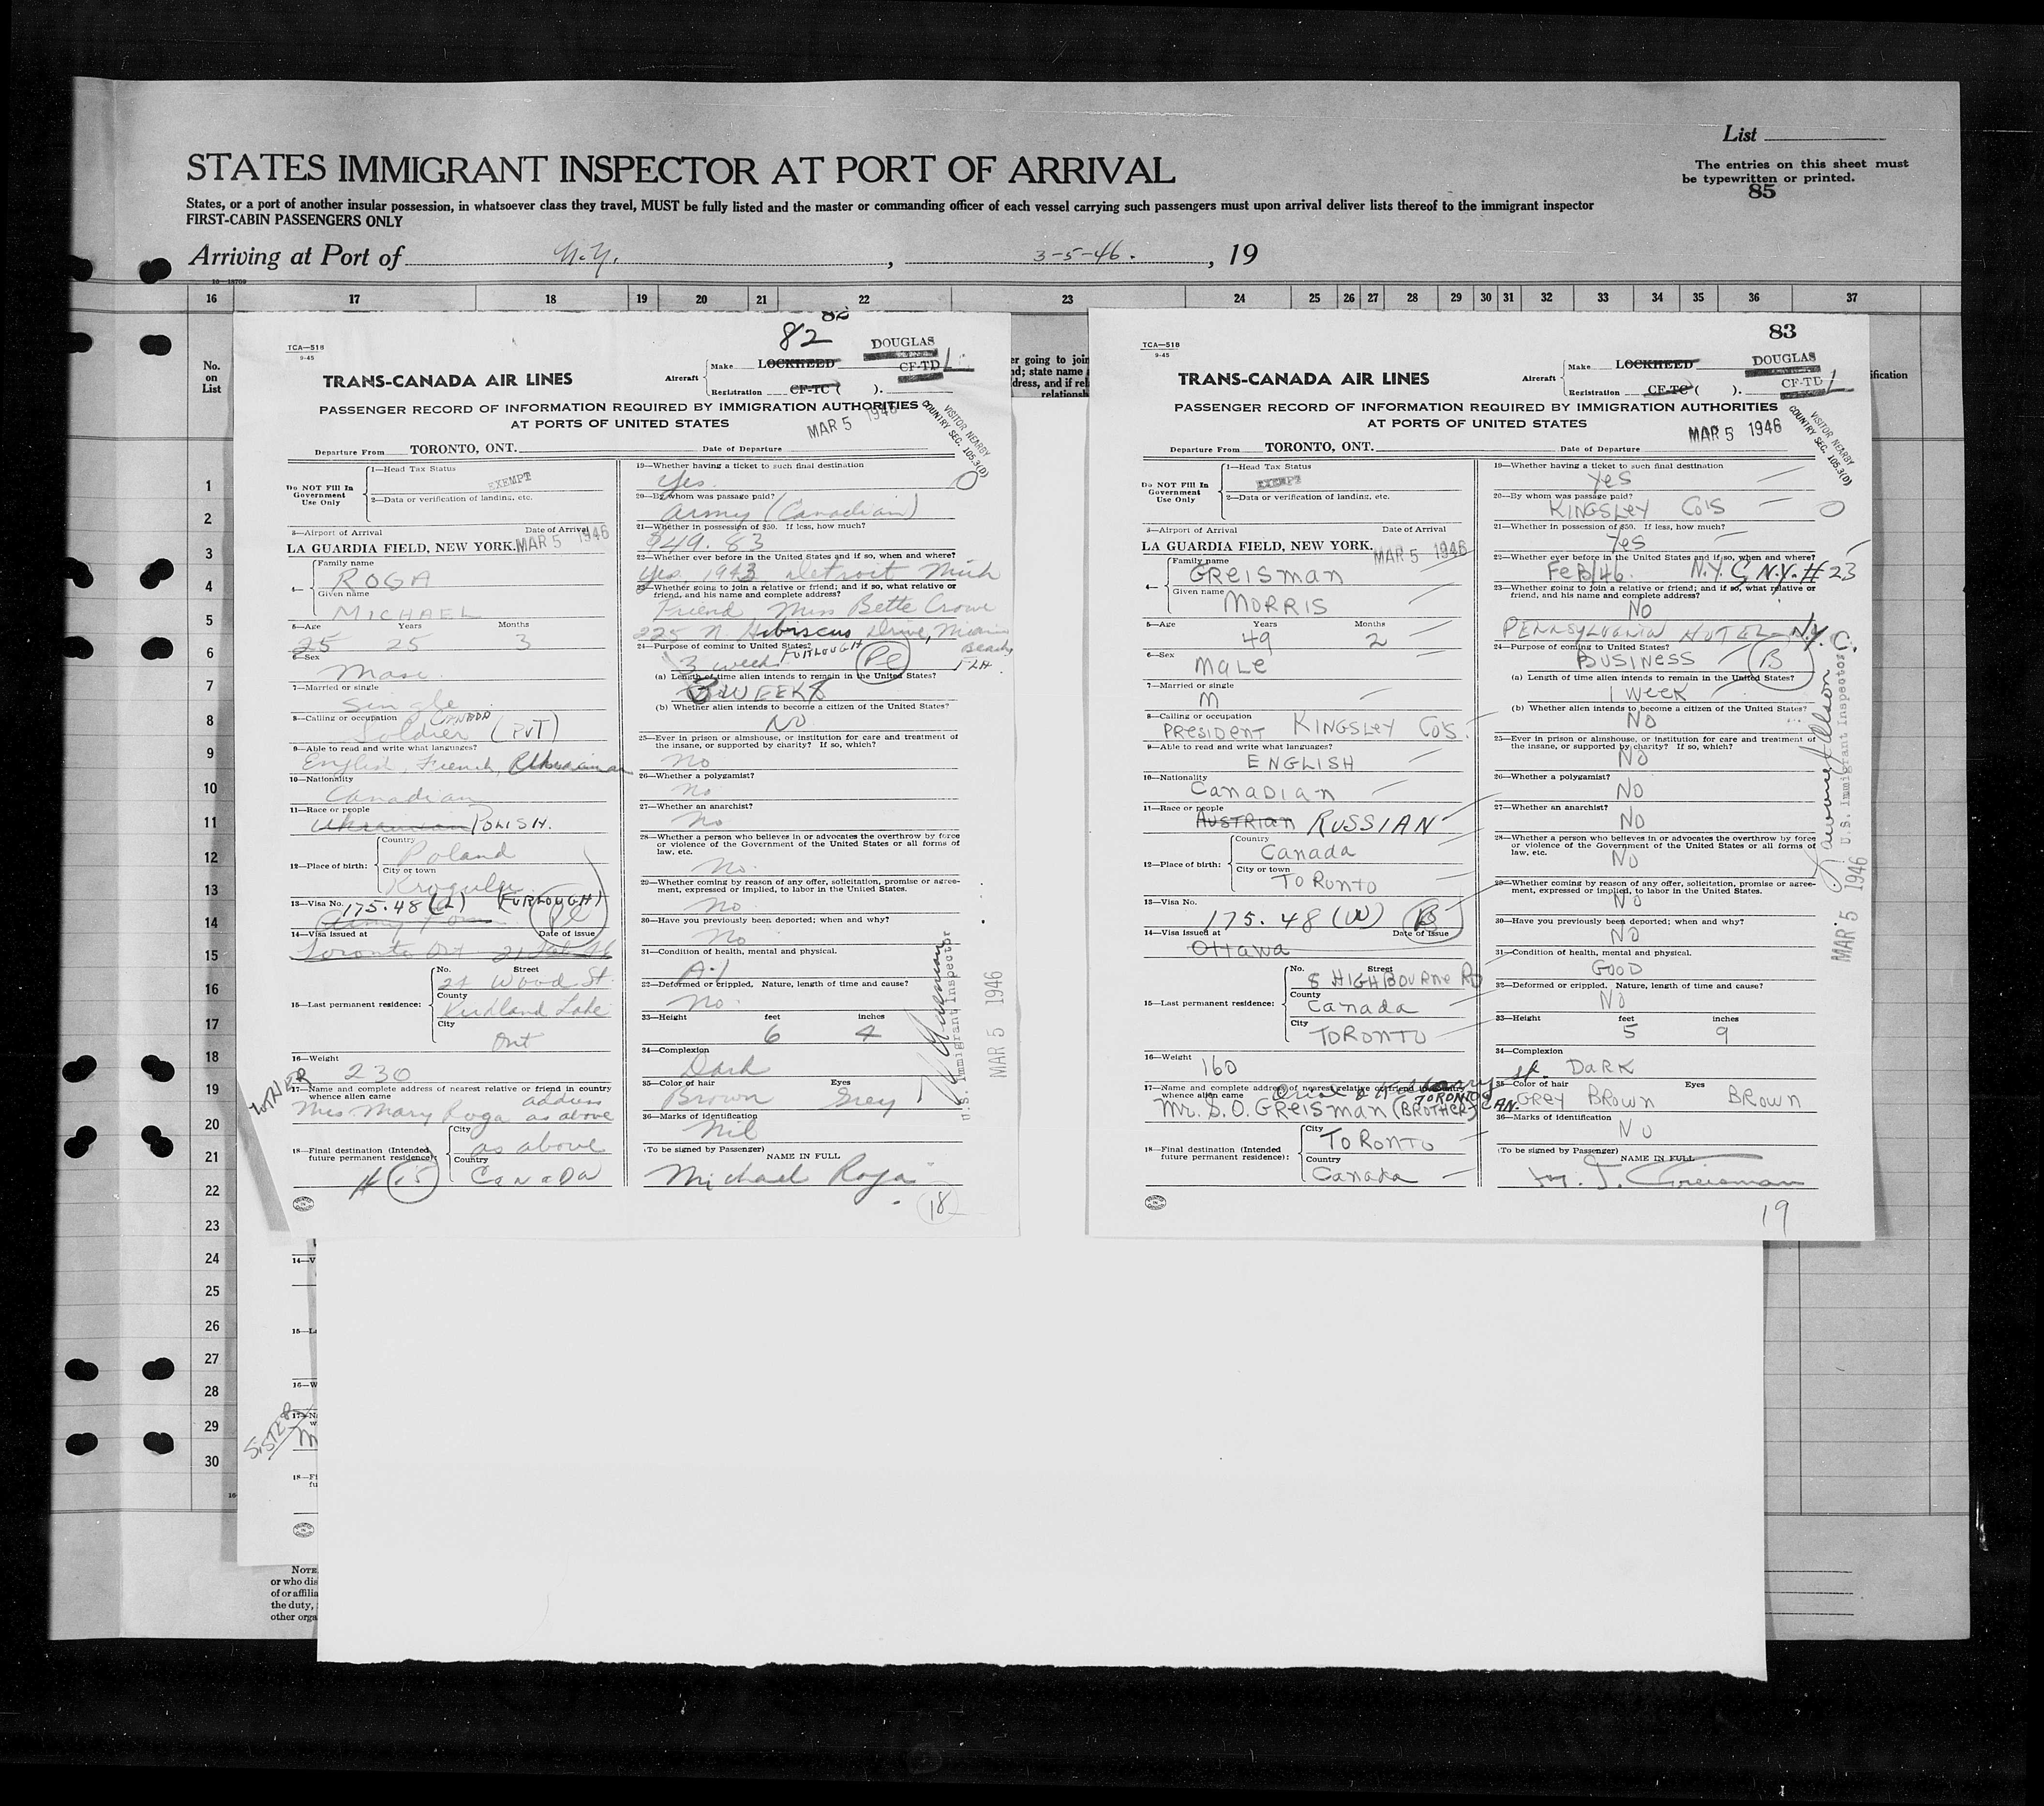 List
STATES IMMIGRANT INSPECTOR AT PORT OF ARRIVAL
The entries on this sheet must
be typewritten or printed.
85
States, or a port of another insular possession, in whatsoever class they travel, MUST be fully listed and the master or commanding officer of each vessel carrying such passengers must upon arrival deliver lists thereof to the immigrant inspector
FIRST-CABIN PASSENGERS ONLY
Arriving at Port of N.Y. , 3-5-46. , 19
16 17 18 19 20 21 22 23 24 25 26 27 28 29 30 31 32 33 34 35 36 37
No.
on
List
1
2
3
4
5
6
7
8
9
10
11
12
13
14
15
16
17
18
19
20
21
22
23
24
25
26
27
28
29
30
82
TCA—518
9-45
TRANS-CANADA AIR LINES
Aircraft
Make LOCKHEED DOUGLAS
Registration CF-TC ( ). CF-TD L
PASSENGER RECORD OF INFORMATION REQUIRED BY IMMIGRATION AUTHORITIES
AT PORTS OF UNITED STATES
MAR 5 1946
VISITOR NEARBY
COUNTRY SEC. 105.3(D)
Departure From TORONTO, ONT. Date of Departure
Do NOT Fill In
Government
Use Only
1—Head Tax Status
EXEMPT
2—Data or verification of landing, etc.
3—Airport of Arrival Date of Arrival
LA GUARDIA FIELD, NEW YORK. MAR 5 1946
4—
Family name
ROGA
Given name
MICHAEL
5—Age Years Months
25 25 3
6—Sex
Male
7—Married or single
Single
8—Calling or occupation
Soldier (PVT) CANADA
9—Able to read and write what languages?
English, French, Ukrainian
10—Nationality
Canadian
11—Race or people
Ukrainian POLISH.
12—Place of birth:
Country
Poland
City or town
13—Visa No.
175.48 (L) (FURLOUGH)
Army Form
Pl
14—Visa issued at Date of issue
Toronto Ont 21 Feb 46
15—Last permanent residence:
No. Street
21 Wood St.
County
Kirkland Lake
City
Ont
16—Weight
230
17—Name and complete address of nearest relative or friend in country
whence alien came
MOTHER
Mrs Mary Roga address as above
18—Final destination (Intended
future permanent residence):
City
as above
Country
CANADA
# 15
19—Whether having a ticket to such final destination
Yes.
20—By whom was passage paid?
Army (Canadian)
21—Whether in possession of $50. If less, how much?
$49.83
22—Whether ever before in the United States and if so, when and where?
Yes 1943 Detroit Mich
23—Whether going to join a relative or friend; and if so, what relative or
friend, and his name and complete address?
Friend Miss Bette Crowe
225 N. Hibiscus Drive, Miami
Beach
FLA
24—Purpose of coming to United States?
3 weeks FURLOUGH Pl
(a) Length of time alien intends to remain in the United States?
3 WEEKS
(b) Whether alien intends to become a citizen of the United States?
NO
25—Ever in prison or almshouse, or institution for care and treatment of
the insane, or supported by charity? If so, which?
no
26—Whether a polygamist?
no
27—Whether an anarchist?
no
28—Whether a person who believes in or advocates the overthrow by force
or violence of the Government of the United States or all forms of
law, etc.
No.
29—Whether coming by reason of any offer, solicitation, promise or agree-
ment, expressed or implied, to labor in the United States.
No.
30—Have you previously been deported; when and why?
No
31—Condition of health, mental and physical.
A-1
32—Deformed or crippled. Nature, length of time and cause?
no.
33—Height feet inches
6 4
34—Complexion
Dark
35—Color of hair Eyes
Brown Grey
36—Marks of identification
Nil
(To be signed by Passenger) NAME IN FULL
Michael Roga
18
U.S. Immigrant Inspector
MAR 5 1946
83
TCA—518
9-45
TRANS-CANADA AIR LINES
Aircraft
Make LOCKHEED DOUGLAS
Registration CF-TC ( ). CF-TD L
PASSENGER RECORD OF INFORMATION REQUIRED BY IMMIGRATION AUTHORITIES
AT PORTS OF UNITED STATES
MAR 5 1946
VISITOR NEARBY
COUNTRY SEC. 105.3(D)
Departure From TORONTO, ONT. Date of Departure
Do NOT Fill In
Government
Use Only
1—Head Tax Status
EXEMPT
2—Data or verification of landing, etc.
3—Airport of Arrival Date of Arrival
LA GUARDIA FIELD, NEW YORK. MAR 5 1946
4—
Family name
GREISMAN
Given name
MORRIS
5—Age Years Months
49 2
6—Sex
MALE
7—Married or single
M
8—Calling or occupation
PRESIDENT KINGSLEY CO'S.
9—Able to read and write what languages?
ENGLISH
10—Nationality
CANADIAN
11—Race or people
AUSTRIAN RUSSIAN
12—Place of birth:
Country
Canada
City or town
TORONTO
13—Visa No.
175.48 (W) B
14—Visa issued at Date of issue
OTTAWA
15—Last permanent residence:
No. Street
8 HIGHBOURNE RD
County
Canada
City
TORONTO
16—Weight
160
17—Name and complete address of nearest relative or friend in country
whence alien came
TORONTO CAN.
Mr. S. O. GREISMAN (BROTHER)
18—Final destination (Intended
future permanent residence):
City
TORONTO
Country
Canada
19—Whether having a ticket to such final destination
YES
20—By whom was passage paid?
KINGSLEY CO'S
21—Whether in possession of $50. If less, how much?
Yes
22—Whether ever before in the United States and if so, when and where?
FEB/46. N.Y.C, N.Y. # 23
23—Whether going to join a relative or friend; and if so, what relative or
friend, and his name and complete address?
NO
PENNSYLVANIA HOTEL - N.Y.C.
24—Purpose of coming to United States?
BUSINESS B
(a) Length of time alien intends to remain in the United States?
1 WEEK
(b) Whether alien intends to become a citizen of the United States?
NO
25—Ever in prison or almshouse, or institution for care and treatment of
the insane, or supported by charity? If so, which?
NO
26—Whether a polygamist?
NO
27—Whether an anarchist?
NO
28—Whether a person who believes in or advocates the overthrow by force
or violence of the Government of the United States or all forms of
law, etc.
NO
29—Whether coming by reason of any offer, solicitation, promise or agree-
ment, expressed or implied, to labor in the United States.
NO
30—Have you previously been deported; when and why?
NO
31—Condition of health, mental and physical.
GOOD
32—Deformed or crippled. Nature, length of time and cause?
NO
33—Height feet inches
5 9
34—Complexion
DARK
35—Color of hair Eyes
GREY BROWN BROWN
36—Marks of identification
NO
(To be signed by Passenger) NAME IN FULL
M. J. Greisman
19
U.S. Immigrant Inspector
MAR 5 1946
er going to join
nd; state name
dress, and if rel
relationsh
ification
SISTER
NOTE.
or who dis
of or affilia
the duty,
other orga